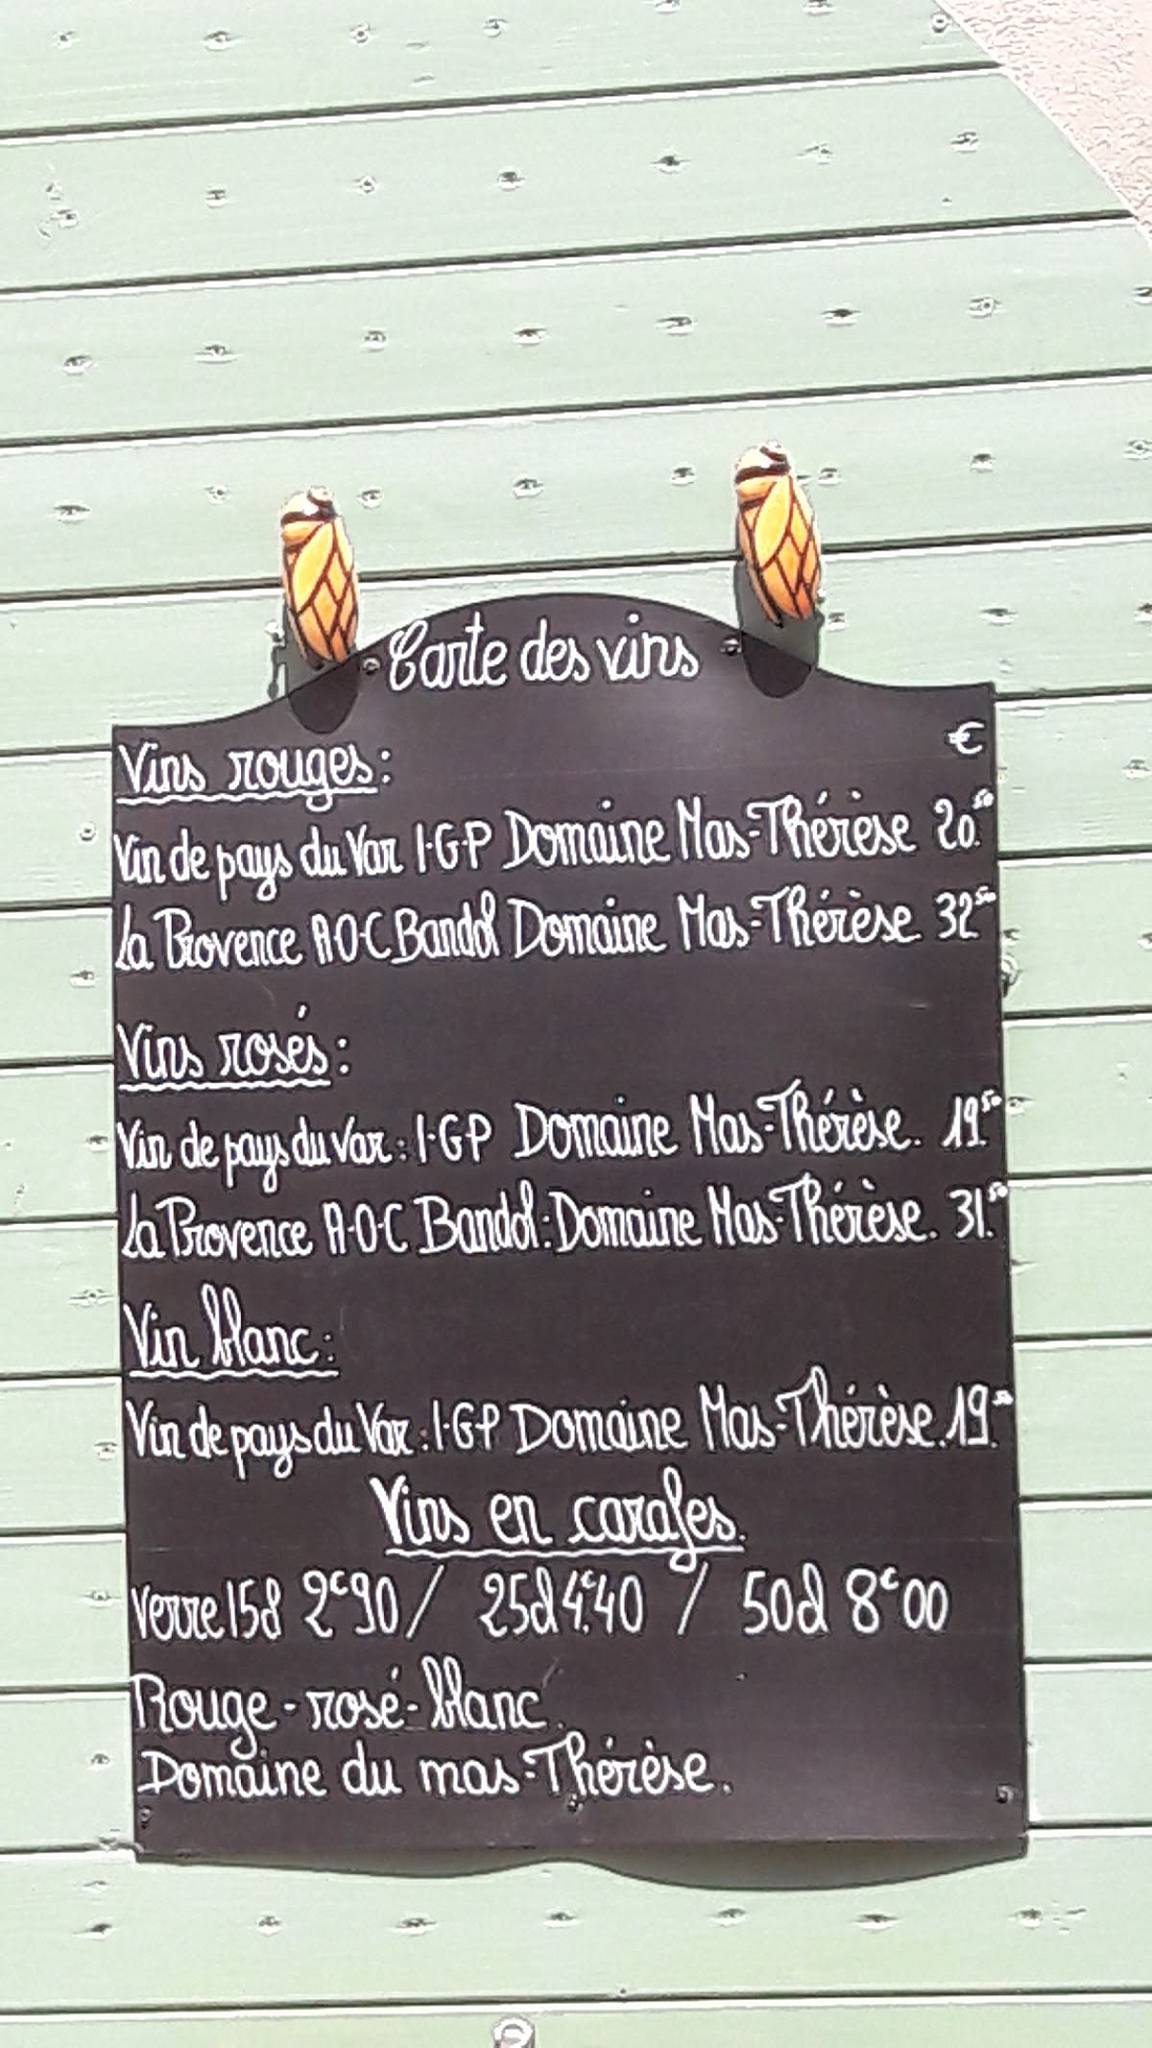 Carte des vins
€
Vins rouges:
Vin de pays du Var I.G.P Domaine Mas-Thérèse 20.50
La Provence A.O.C Bandol Domaine Mas-Thérèse. 32.50
Vins rosés:
Vin de pays du Var: I.G.P Domaine Mas-Thérèse. 19.50
La Provence A.O.C Bandol: Domaine Mas-Thérèse. 31.50
Vin blanc:
Vin de pays du Var: I.G.P Domaine Mas-Thérèse. 19.50
Vins en carafes.
Verre 15cl 2€90 / 25cl 4€40 / 50cl 8€00
Rouge-rosé-blanc.
Domaine du mas-Thérèse.